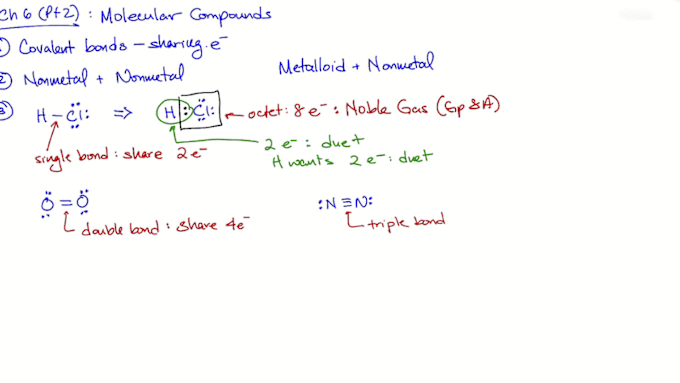 Ch 6 (Pt 2) : Molecular Compounds
1) Covalent bonds – sharing e⁻
2) Nonmetal + Nonmetal
Metalloid + Nonmetal
3) H – Cl: ⇒ H : Cl: octet: 8 e⁻ : Noble Gas (Gp 8A)
2 e⁻ : duet
single bond : share 2 e⁻
H wants 2 e⁻ : duet
O = O :N ≡ N:
double bond : share 4e⁻
triple bond